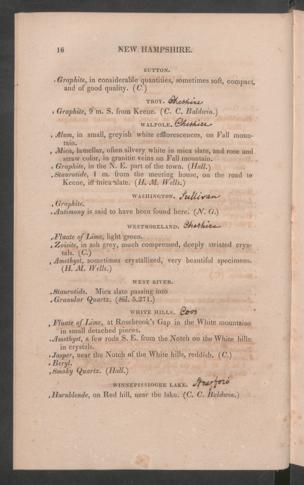 16 NEW HAMPSHIRE.
SUTTON.
Graphite, in considerable quantities, sometimes soft, compact,
and of good quality. (C)
TROY. Cheshire
Graphite, 9 m. S. from Keene. (C. C. Baldwin.)
WALPOLE. Cheshire
Alum, in small, greyish white efflorescences, on Fall moun-
tain.
Mica, lamellar, often silvery white in mica slate, and rose and
straw color, in granitic veins on Fall mountain.
Graphite, in the N. E. part of the town. (Hall.)
Staurotide, 1 m. from the meeting house, on the road to
Keene, in mica slate. (H. M. Wells.)
WASHINGTON. Sullivan
Graphite.
Antimony is said to have been found here. (N. G.)
WESTMORELAND. Cheshire
Fluate of Lime, light green.
Zoisite, in ash grey, much compressed, deeply striated crys-
tals. (C.)
Amethyst, sometimes crystallized, very beautiful specimens.
(H. M. Wells.)
WEST RIVER.
Staurotide. Mica slate passing into
Granular Quartz. (Sil. 5.271.)
WHITE HILLS. Coos
Fluate of Lime, at Rosebrook's Gap in the White mountains
in small detached pieces.
Amethyst, a few rods S. E. from the Notch on the White hills,
in crystals.
Jasper, near the Notch of the White hills, reddish. (C.)
Beryl.
Smoky Quartz. (Hall.)
WINNEPISSIOGEE LAKE. Strafford
Hornblende, on Red hill, near the lake. (C. C. Baldwin.)